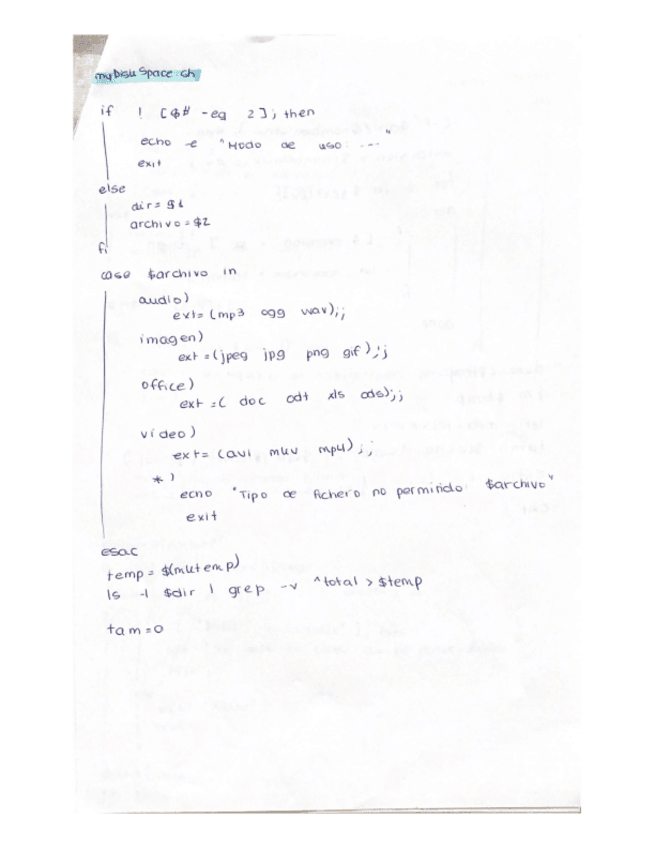 myDiskSpace.sh
if ! [$# -eq 2]; then
echo -e "Modo de uso: ---"
exit
else
dir=$1
archivo=$2
fi
case $archivo in
audio)
ext=(mp3 ogg wav);;
imagen)
ext=(jpeg jpg png gif);;
office)
ext=( doc odt xls ods);;
video)
ext=(avi mkv mp4);;
*)
echo "Tipo de fichero no permitido: $archivo"
exit
esac
temp=$(mktemp)
ls -l $dir | grep -v ^total > $temp
tam=0